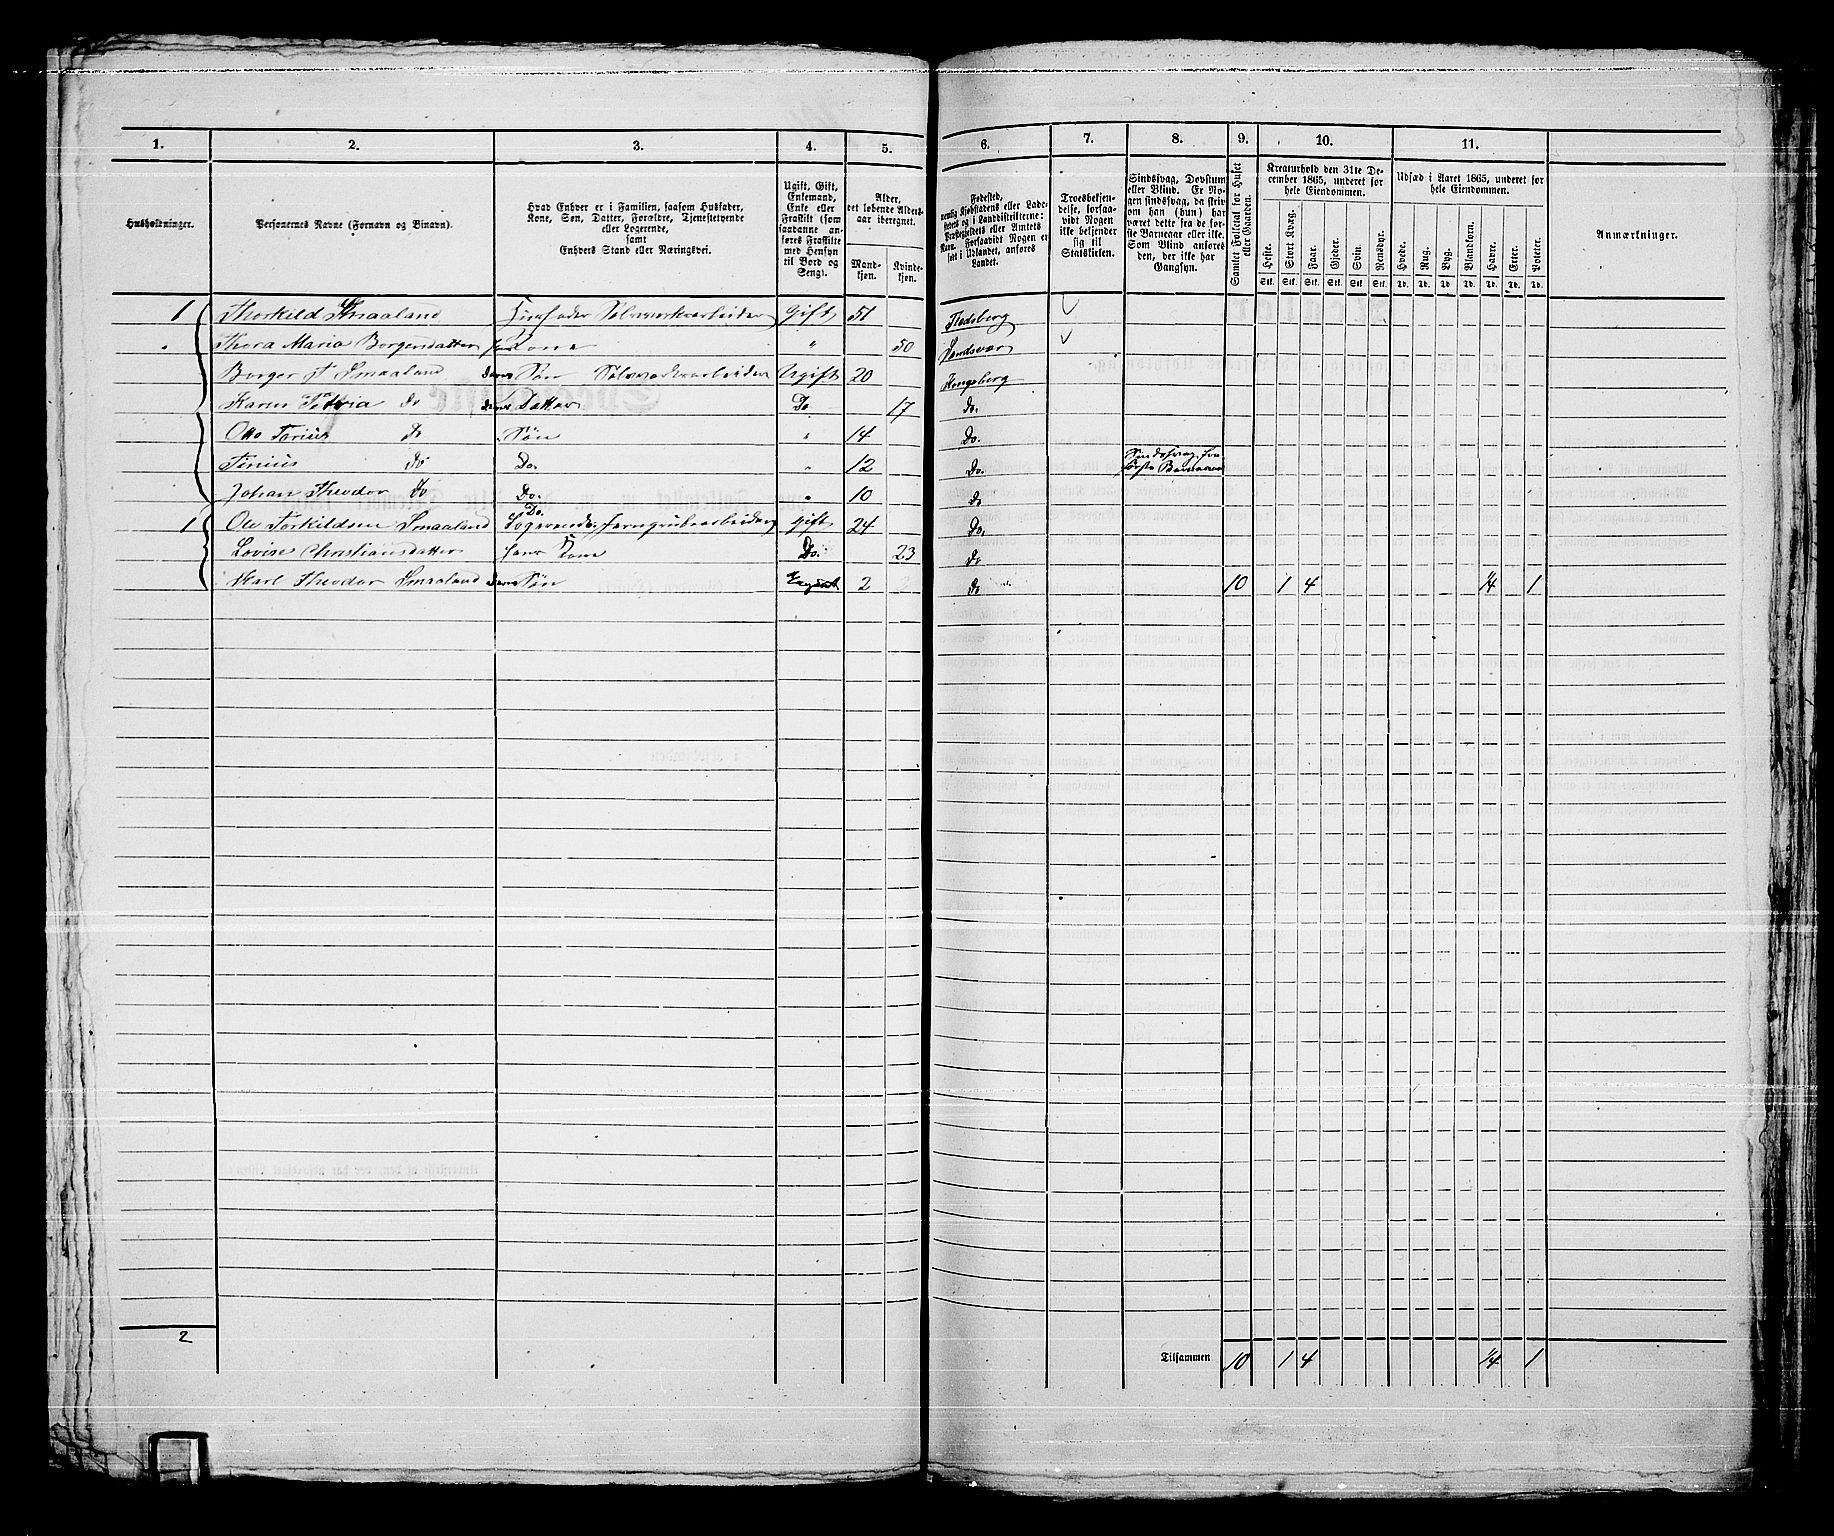 1. 2. 3. 4. 5. 6. 7. 8. 9. 10. 11.
Husholdninger.
Personernes Navne (Fornavn og Binavn).
Hvad Enhver er i Familien, saasom Husfader,
Kone, Søn, Datter, Forældre, Tjenestetyende
eller Logerende,
samt
Enhvers Stand eller Næringsvei.
Ugift, Gift,
Enkemand,
Enke eller
Fraskilt (som
saadanne an-
føres Fraskilte
med Hensyn
til Bord og
Seng).
Alder,
det løbende Alders-
aar iberegnet.
Mand-
kjøn.
Kvinde-
kjøn.
Fødested,
nemlig Kjøbstadens eller Lade-
stedets og i Landdistrikterne:
Præstegjeldets eller Amtets
Navn. Forsaavidt Nogen er
født i Udlandet, anføres
Landet.
Troesbekjen-
delse, forsaa-
vidt Nogen
ikke bekjender
sig til
Statskirken.
Sindssvag, Døvstum
eller Blind. Er No-
gen sindssvag, da skriv
om han (hun) har
været dette fra de før-
ste Barneaar eller ikke.
Som Blind anføres
den, der ikke har
Gangsyn.
Samlet Folketal for Huset
eller Gaarden.
Kreaturhold den 31te De-
cember 1865, underet for
hele Eiendommen.
Heste. Stort Kvæg. Faar. Gjeder. Svin. Rensdyr.
Stk. Stk. Stk. Stk. Stk. Stk.
Udsæd i Aaret 1865, underet for
hele Eiendommen.
Hvede. Rug. Byg. Blandkorn. Havre. Erter. Poteter.
Td. Td. Td. Td. Td. Td. Td.
Anmærkninger.
1 Thorkild Smaaland Husfader Sølvverksarbeider Gift 51 Flesberg
Thora Maria Borgersdatter hans Kone " 50 Sandsvær
Borger T Smaaland deres Søn Sølvverksarbeider Ugift 20 Kongsberg
Karen Do deres Datter Do 17 Do.
Otto Do Søn " 14 Do.
Tinius Do Do. " 12 Do. Sindssvag fra første Barneaar
Johan Theodor Do Do. " 10 Do
1 Ole Torkildsen Smaaland Do. Logerende, Jerngrubearbeider Gift 24 Do.
Lovise Christiansdatter hans Kone Do. 23 Do
Karl Theodor Smaaland deres Søn 2 Do 10 1 4 1/4 1
2
Tilsammen 10 1 4 1/4 1